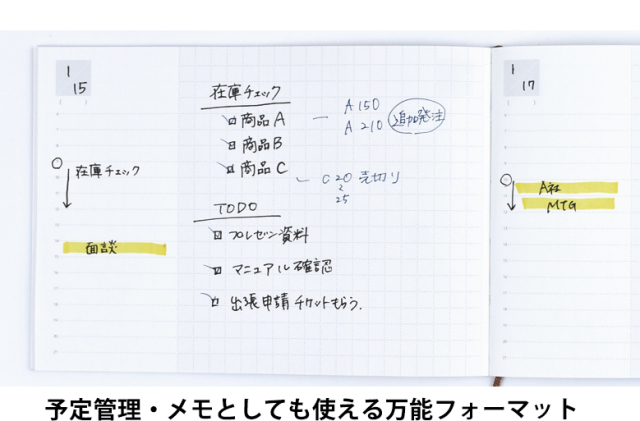 1
15
在庫チェック
面談
在庫チェック
商品A
商品B
商品C
A 150
A 210
追加発注
C 20 売切り
25
TODO
プレゼン資料
マニュアル確認
出張申請チケットもらう.
1
17
A社
MTG
予定管理・メモとしても使える万能フォーマット